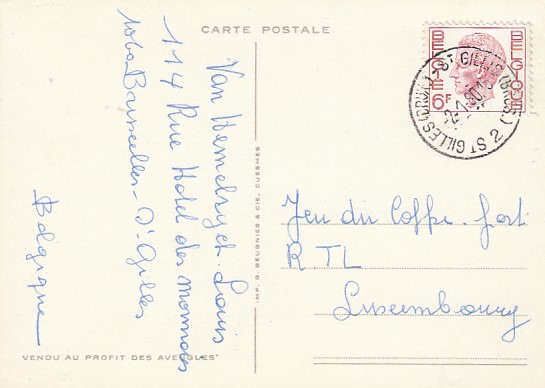 CARTE POSTALE
Van Hemelryck Louis
114 Rue Hotel des Monnaies
1060 Bruxelles - St Gilles
Belgique
VENDU AU PROFIT DES AVEUGLES
IMP. G. BEUGNIES & CIE, CUESMES
BELGIE
BELGIQUE
6F
ST GILLIS (BRUS.) 2
ST GILLES (BRUX.) 2
Jeu du Coffre-fort
RTL
Luxembourg